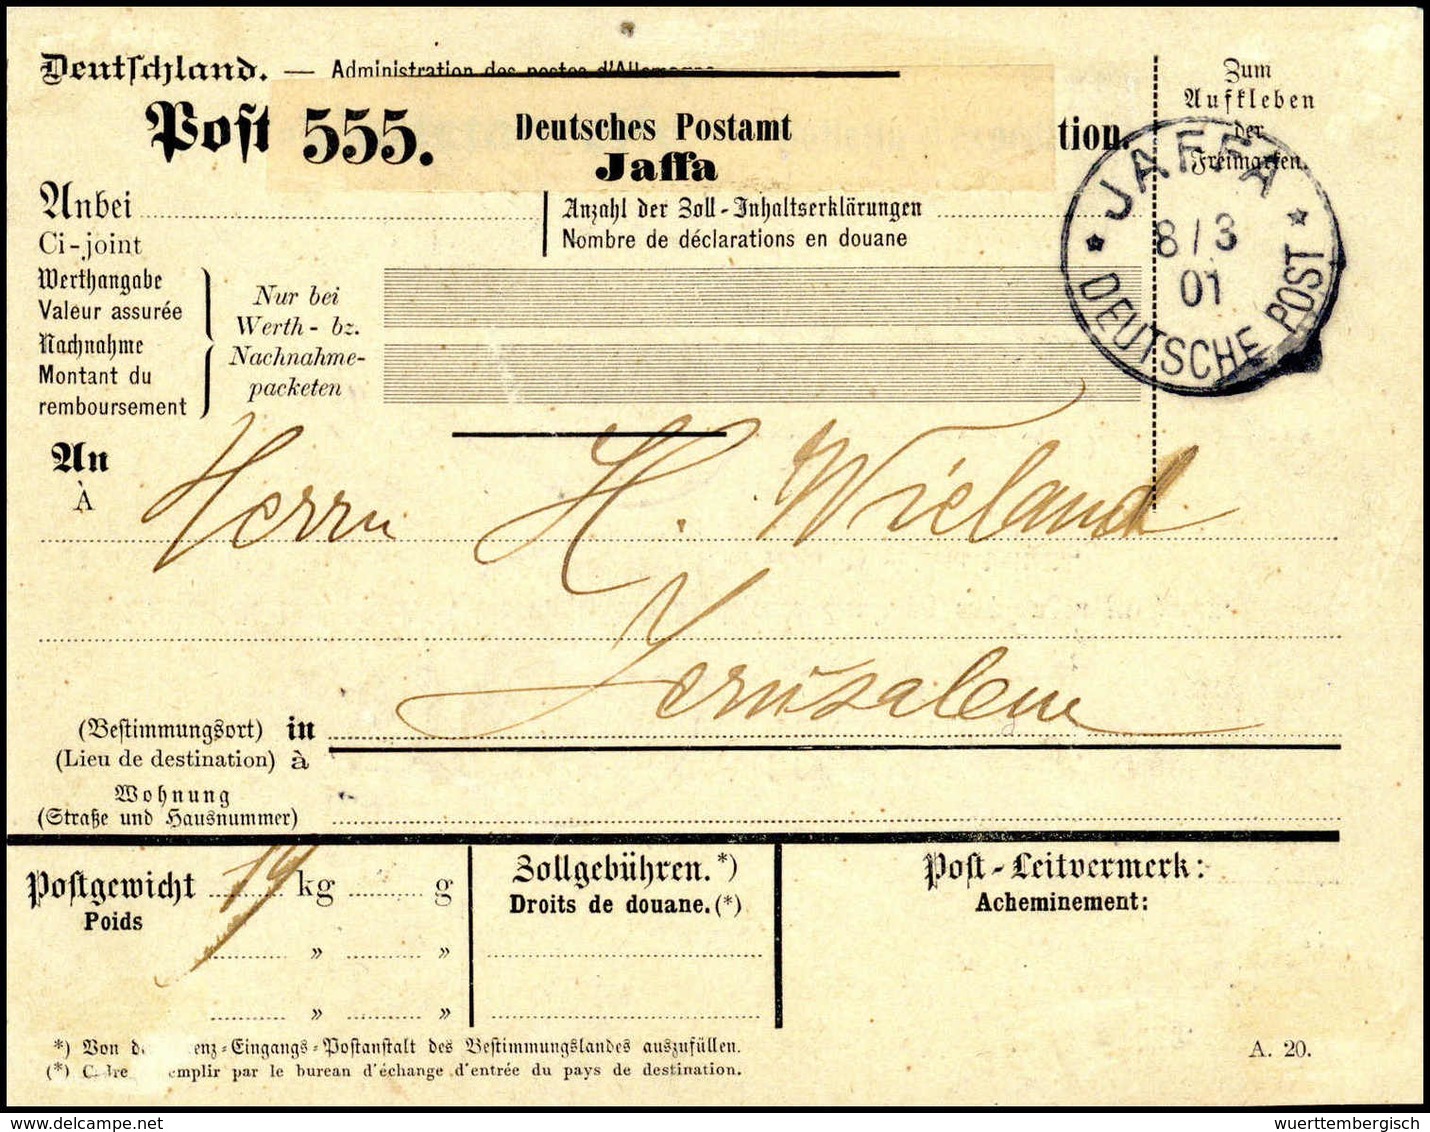 Deutschland. — Administration des postes d'Allemagne
Post 555. Deutsches Postamt Jaffa tion.
Zum
Aufkleben
der
Freimarken.
JAFFA
8/3
01
* DEUTSCHE POST *
Anbei
Ci-joint
Anzahl der Zoll-Inhaltserklärungen
Nombre de déclarations en douane
Werthangabe
Valeur assurée
Nachnahme
Montant du
remboursement
Nur bei
Werth- bz.
Nachnahme-
packeten
An
À
Herrn H. Wieland
Jerusalem
(Bestimmungsort) in
(Lieu de destination) à
Wohnung
(Straße und Hausnummer)
Postgewicht 19 kg g
Poids
» »
» »
Zollgebühren.*)
Droits de douane.(*)
Post-Leitvermerk:
Acheminement:
*) Von d enz-Eingangs-Postanstalt des Bestimmungslandes auszufüllen.
(*) emplir par le bureau d'échange d'entrée du pays de destination.
A. 20.
wuerttembergisch